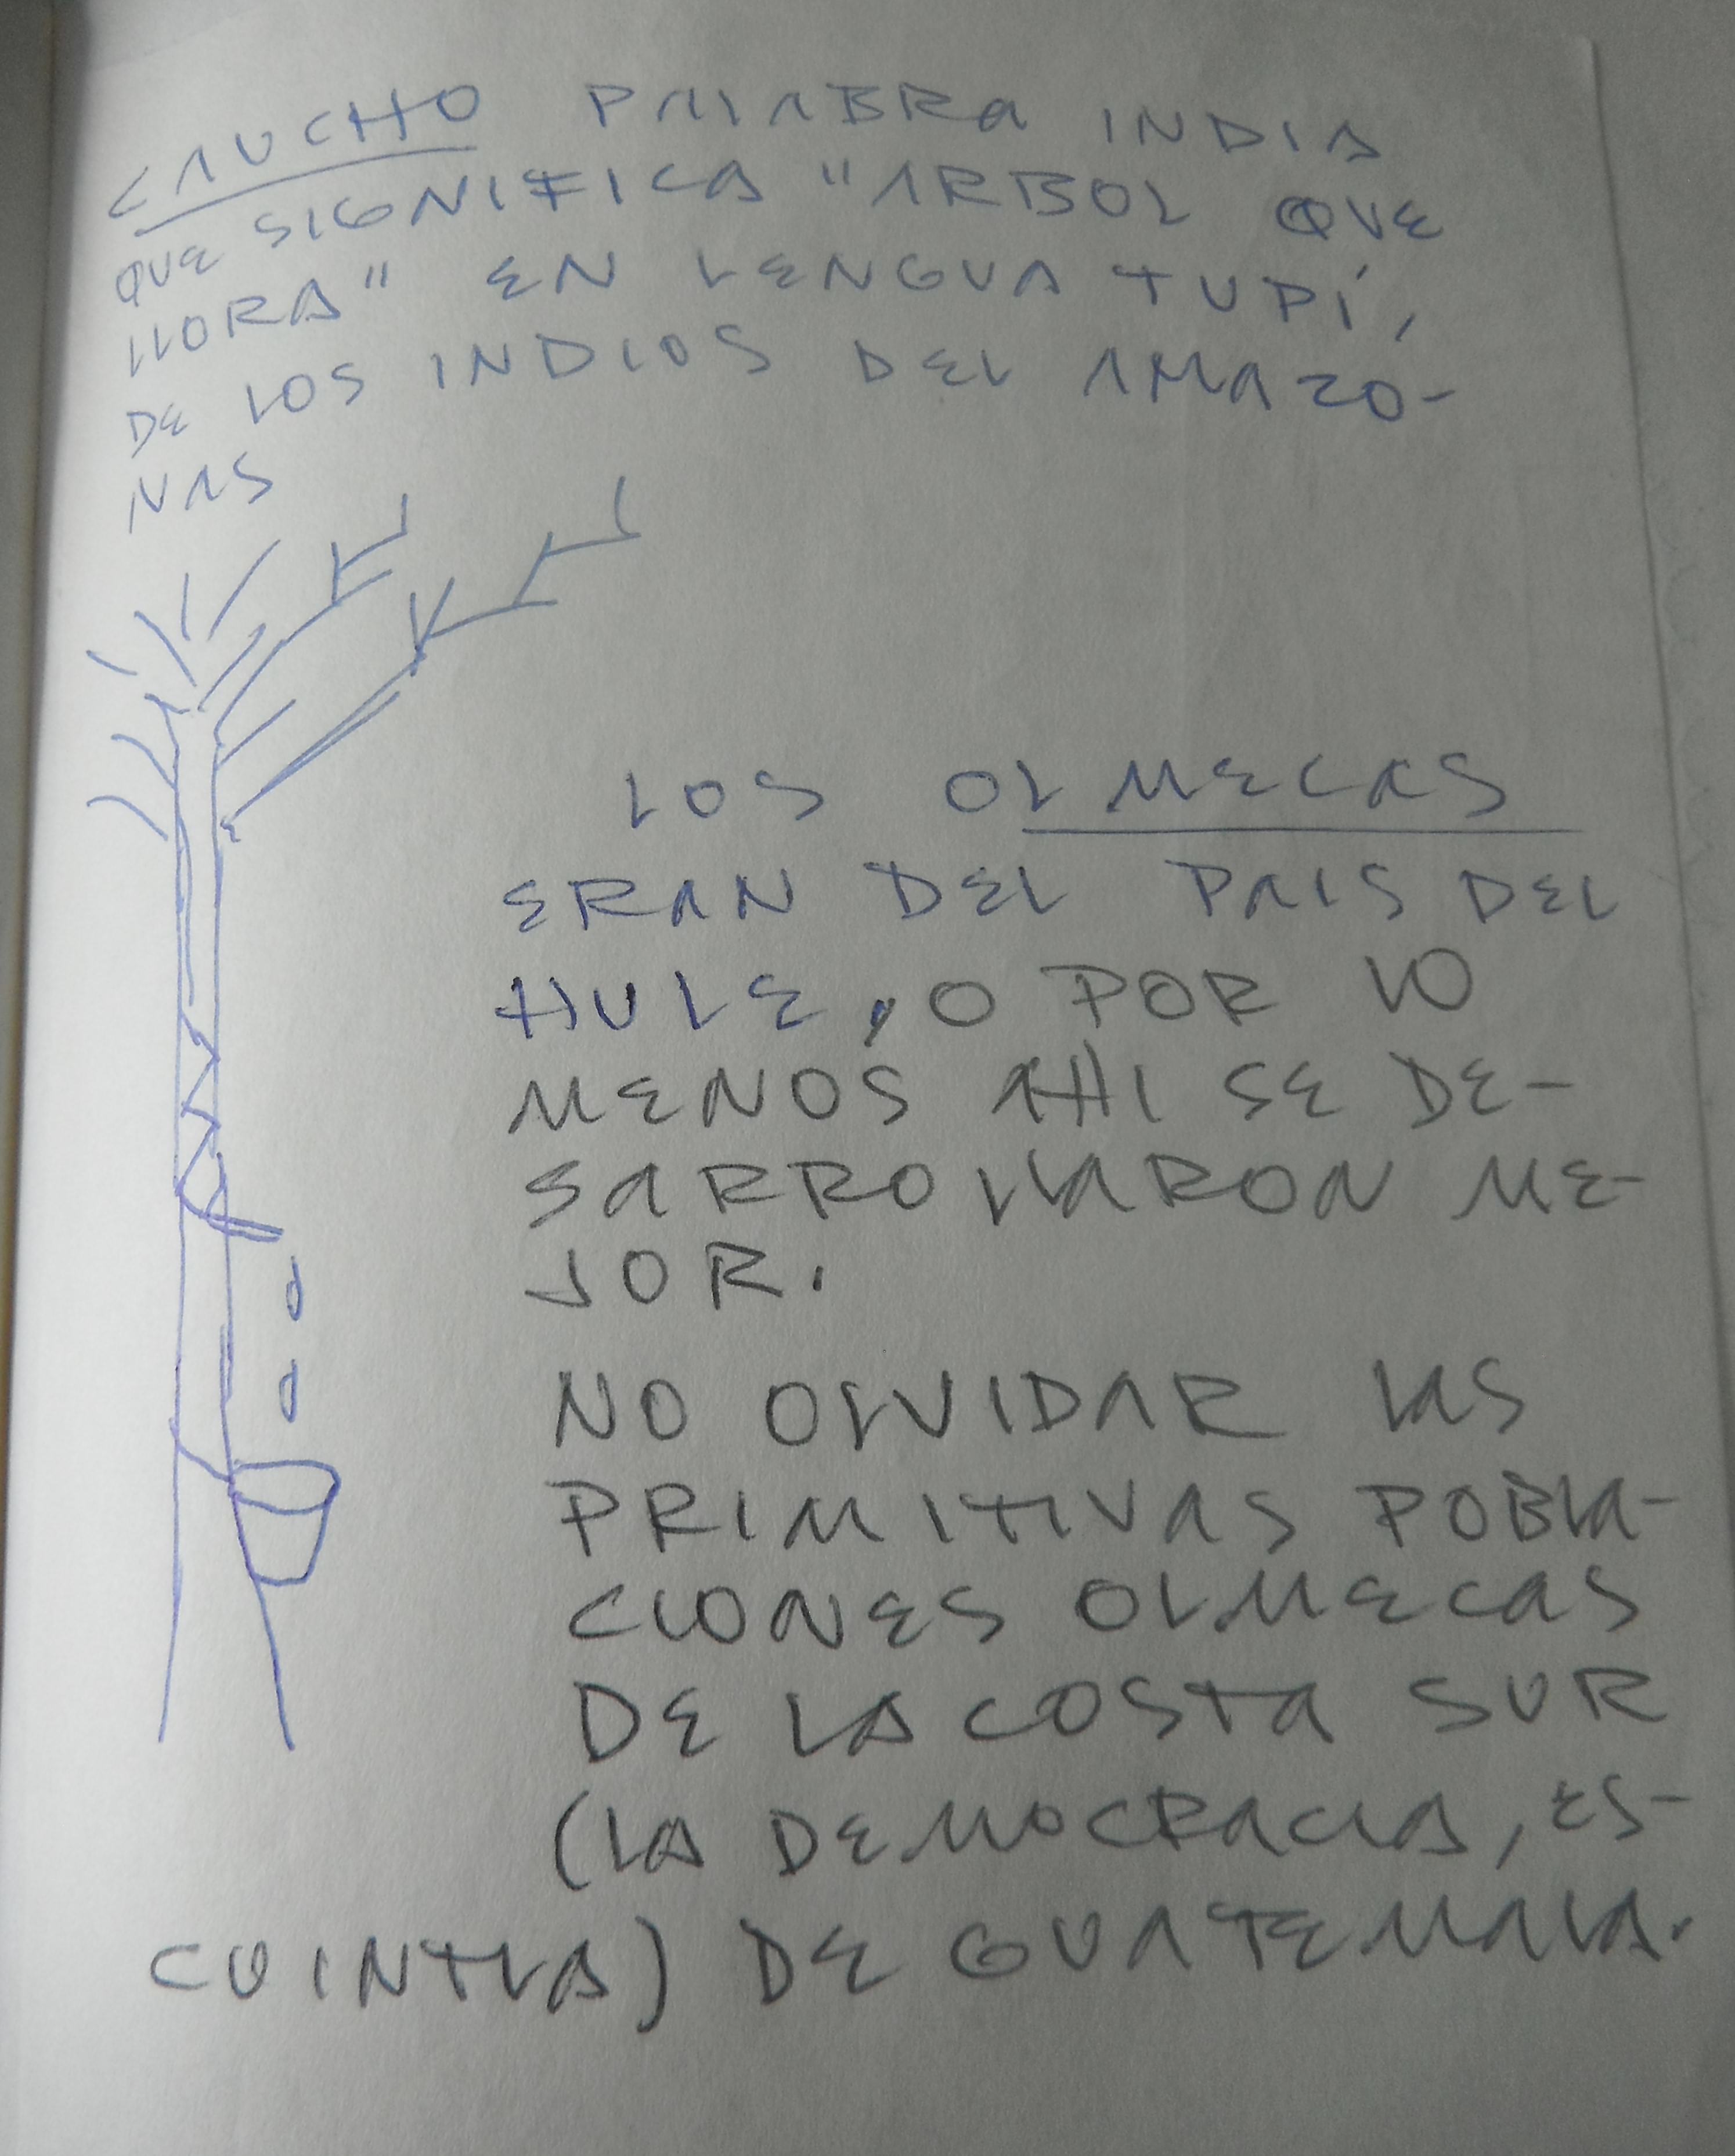 CAUCHO PALABRA INDIA
QUE SIGNIFICA "ARBOL QUE
LLORA" EN LENGUA TUPÍ,
DE LOS INDIOS DEL AMAZO-
NAS
LOS OLMECAS
ERAN DEL PAIS DEL
HULE, O POR LO
MENOS AHI SE DE-
SARROLLARON ME-
JOR.
NO OLVIDAR LAS
PRIMITIVAS POBLA-
CIONES OLMECAS
DE LA COSTA SUR
(LA DEMOCRACIA, ES-
CUINTLA) DE GUATEMALA.